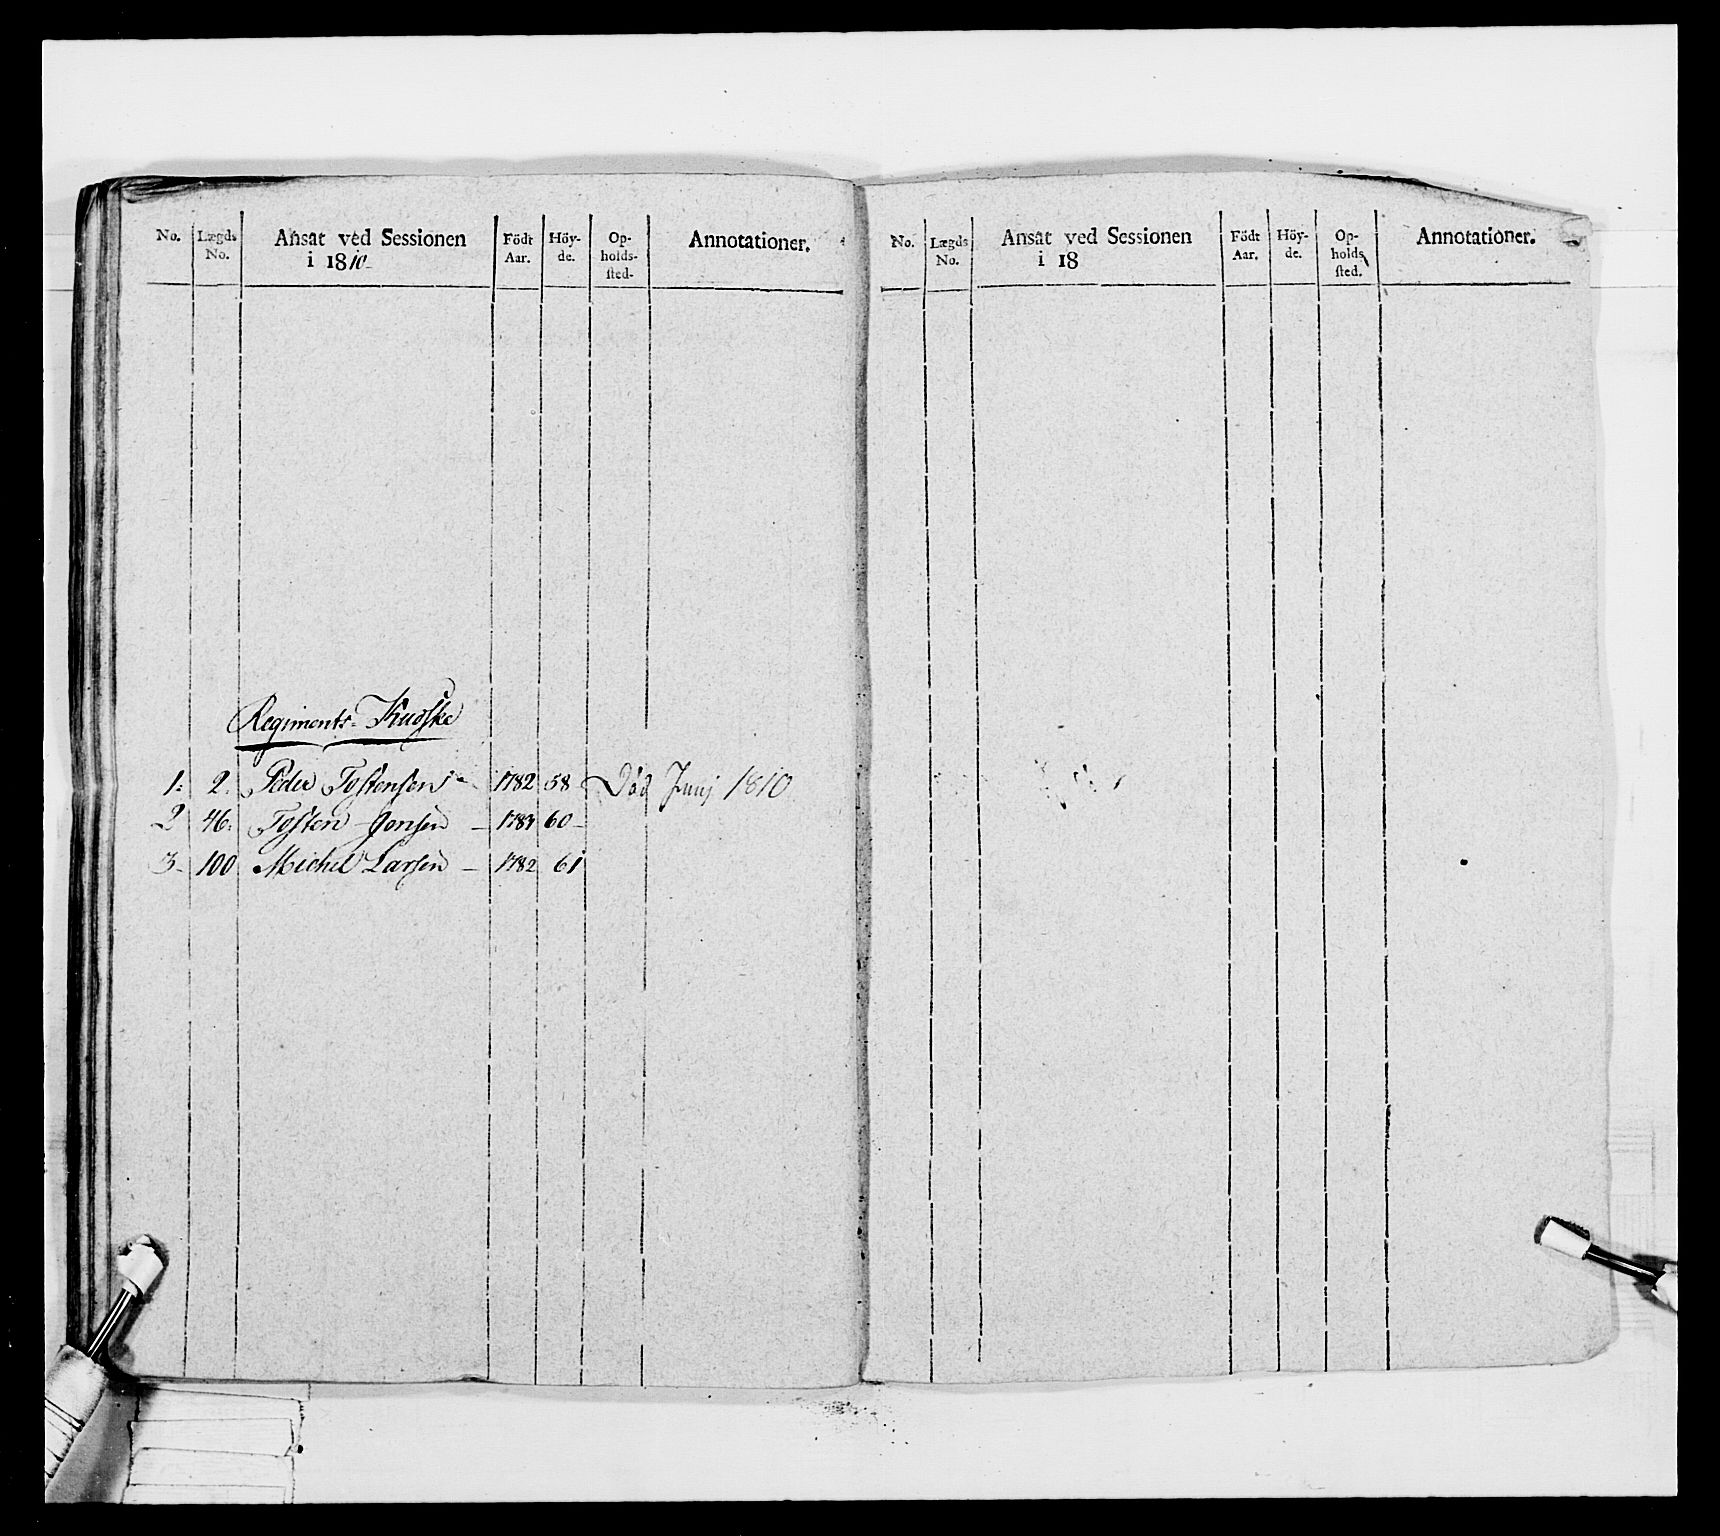 No. Lægds No. Ansat ved Sessionen i 1810 Födt Aar. Höyde. Opholdssted. Annotationer.
Regiments-Kudske
1. 2. Peder Tostensen 1782 58 Död Junj 1810
2 46. Tosten Jonsen 60
3. 100 Michel Larsen 1782 61
No. Lægds No. Ansat ved Sessionen i 18 Födt Aar. Höyde. Opholdssted. Annotationer.